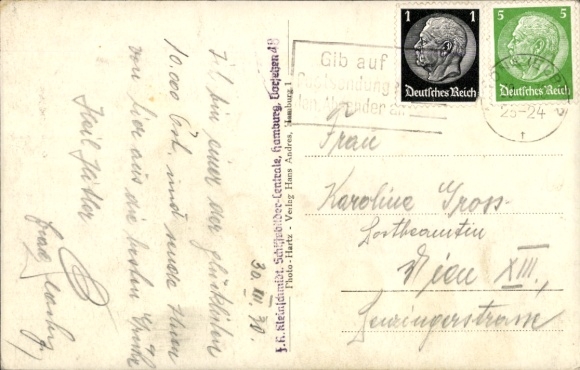 Ich bin einer der glücklichen
10.000 Öst. und sende Ihnen
von hier aus die besten Grüße
Heil Hitler
30. XII. 38.
J. K. Kleinschmidt, Schiffsbilder-Centrale, Hamburg, Vorsetzen 48
Photo-Hartz - Verlag Hans Andres, Hamburg 1
Gib auf
Postsendung
den Absender an
1 1
Deutsches Reich
5 5
Deutsches Reich
23-24
Frau
Karoline Gross
Postbeamtin
Wien XIII,
Penzingerstrasse